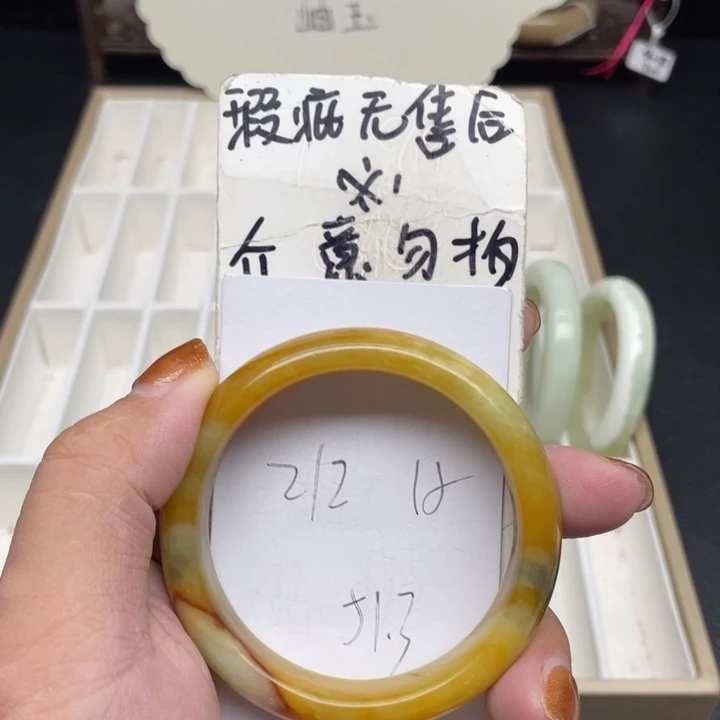 岫玉
瑕疵无售后
介意勿拍
212
51.3